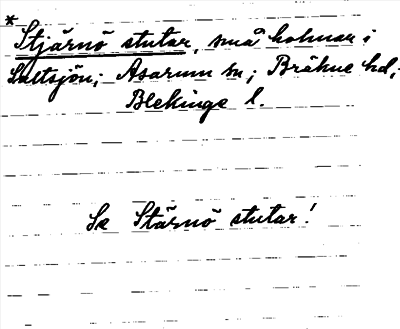 * Stjärnö stutar, små holmar i
Saltsjön; Asarum sn; Bräkne hd;
Blekinge l.
Se Stärnö stutar!